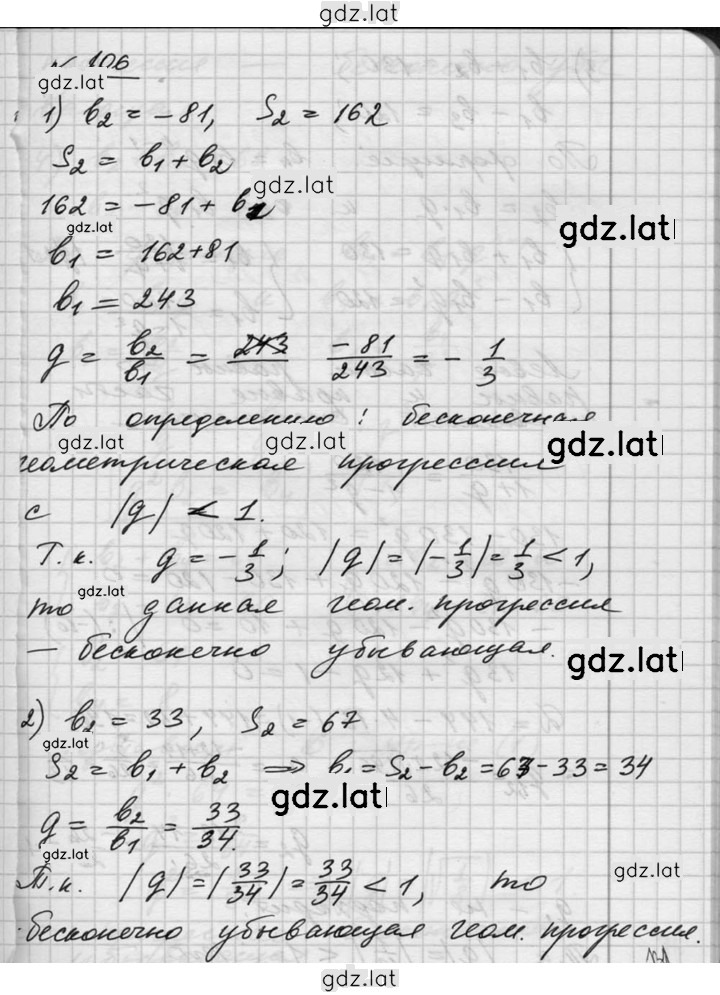 gdz.lat
№ 106
gdz.lat
1) b₂ = -81, S₂ = 162
S₂ = b₁ + b₂
gdz.lat
162 = -81 + b₁
gdz.lat
gdz.lat
b₁ = 162+81
b₁ = 243
g = b₂/b₁ = 243 -81/243 = - 1/3
По определению: бесконечная
gdz.lat gdz.lat gdz.lat
геометрическая прогрессия
с |g| < 1.
Т.к. g = - 1/3; |g| = |-1/3| = 1/3 < 1,
gdz.lat
то данная геом. прогрессия
— бесконечно убывающая.
gdz.lat
2) b₂ = 33, S₂ = 67
gdz.lat
S₂ = b₁ + b₂ => b₁ = S₂ - b₂ = 67-33 = 34
gdz.lat
g = b₂/b₁ = 33/34.
gdz.lat
gdz.lat
Т.к. |g| = |33/34| = 33/34 < 1, то
бесконечно убывающая геом. прогрессия.
gdz.lat